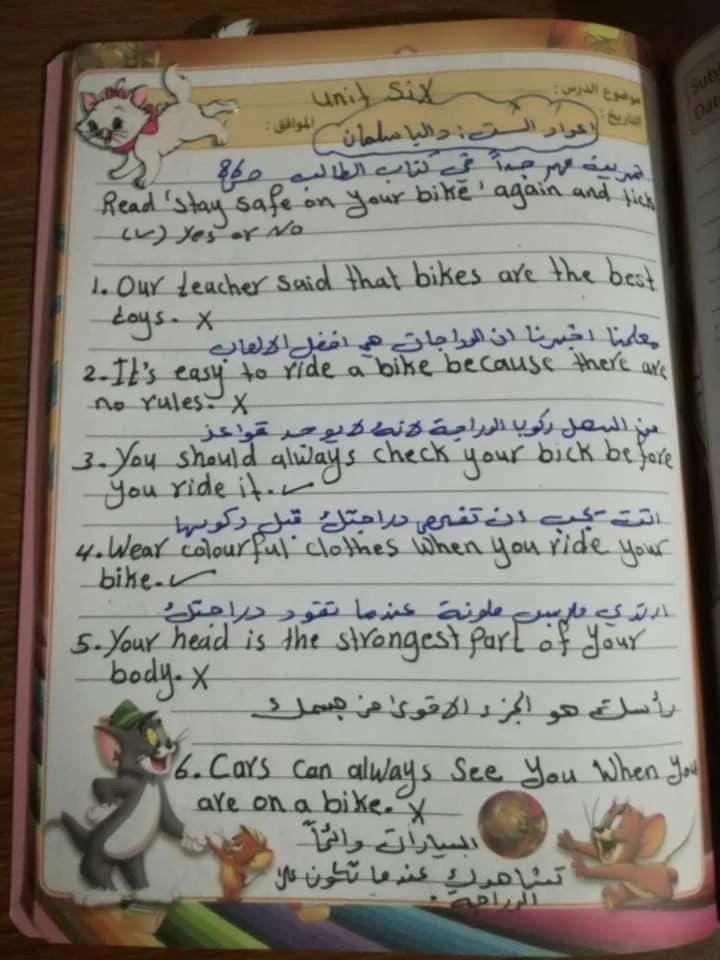 موضوع الدرس :
Unit Six
التاريخ :
الموافق :
اعداد الست : داليا سلمان
تمرين مهم جداً في كتاب الطالب ص68
Read 'stay safe on your bike' again and tick
(✓) Yes or No
1. Our teacher said that bikes are the best
toys. X
معلمنا اخبرنا ان الدراجات هي افضل الالعاب
2. It's easy to ride a bike because there are
no rules. X
من السهل ركوب الدراجة لانه لا يوجد قواعد
3. You should always check your bick before
you ride it. ✓
انت يجب ان تفحص دراجتك قبل ركوبها
4. Wear colourful clothes when you ride your
bike. ✓
ارتدي ملابس ملونة عندما تقود دراجتك
5. Your head is the strongest part of your
body. X
رأسك هو الجزء الاقوى من جسمك
6. Cars can always see you when you
are on a bike. X
السيارات دائماً
تشاهدك عندما تكون على
الدراجة.
Subj
Dat